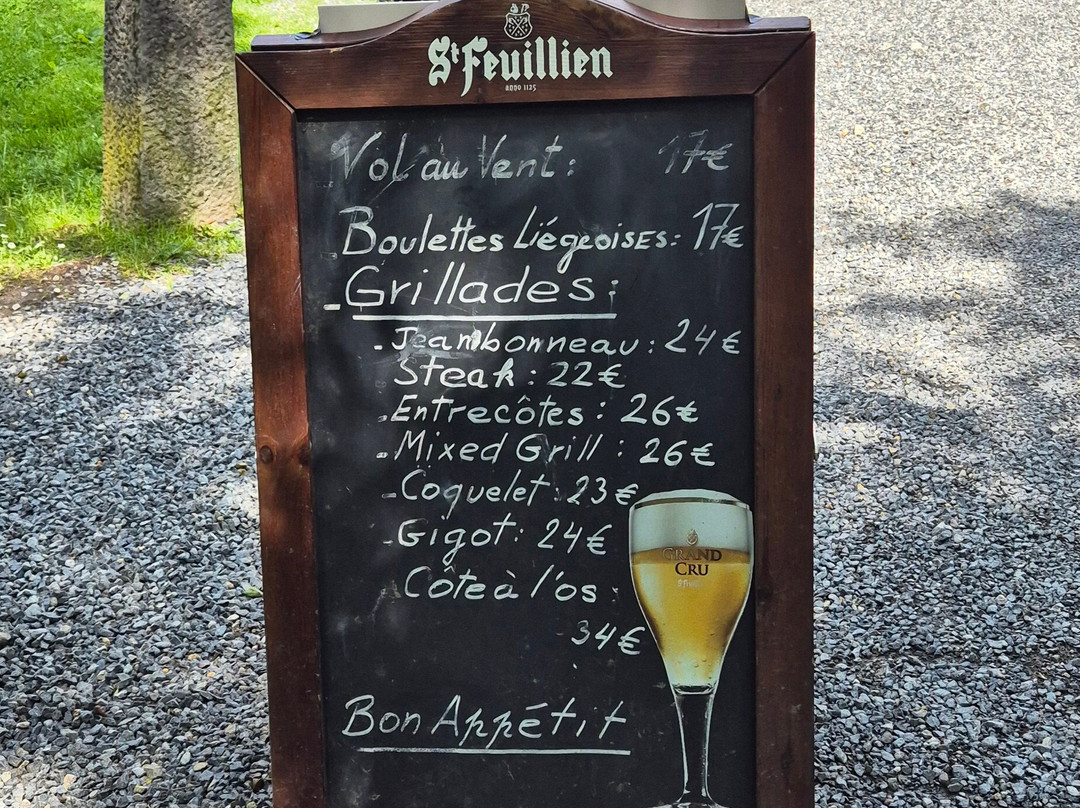 St Feuillien
anno 1125
Vol au Vent : 17€
Boulettes Liégeoises : 17€
- Grillades :
- Jeambonneau : 24€
Steak : 22€
- Entrecôtes : 26€
- Mixed Grill : 26€
- Coquelet : 23€
- Gigot : 24€
Côte à l'os :
34€
GRAND
CRU
Bon Appétit